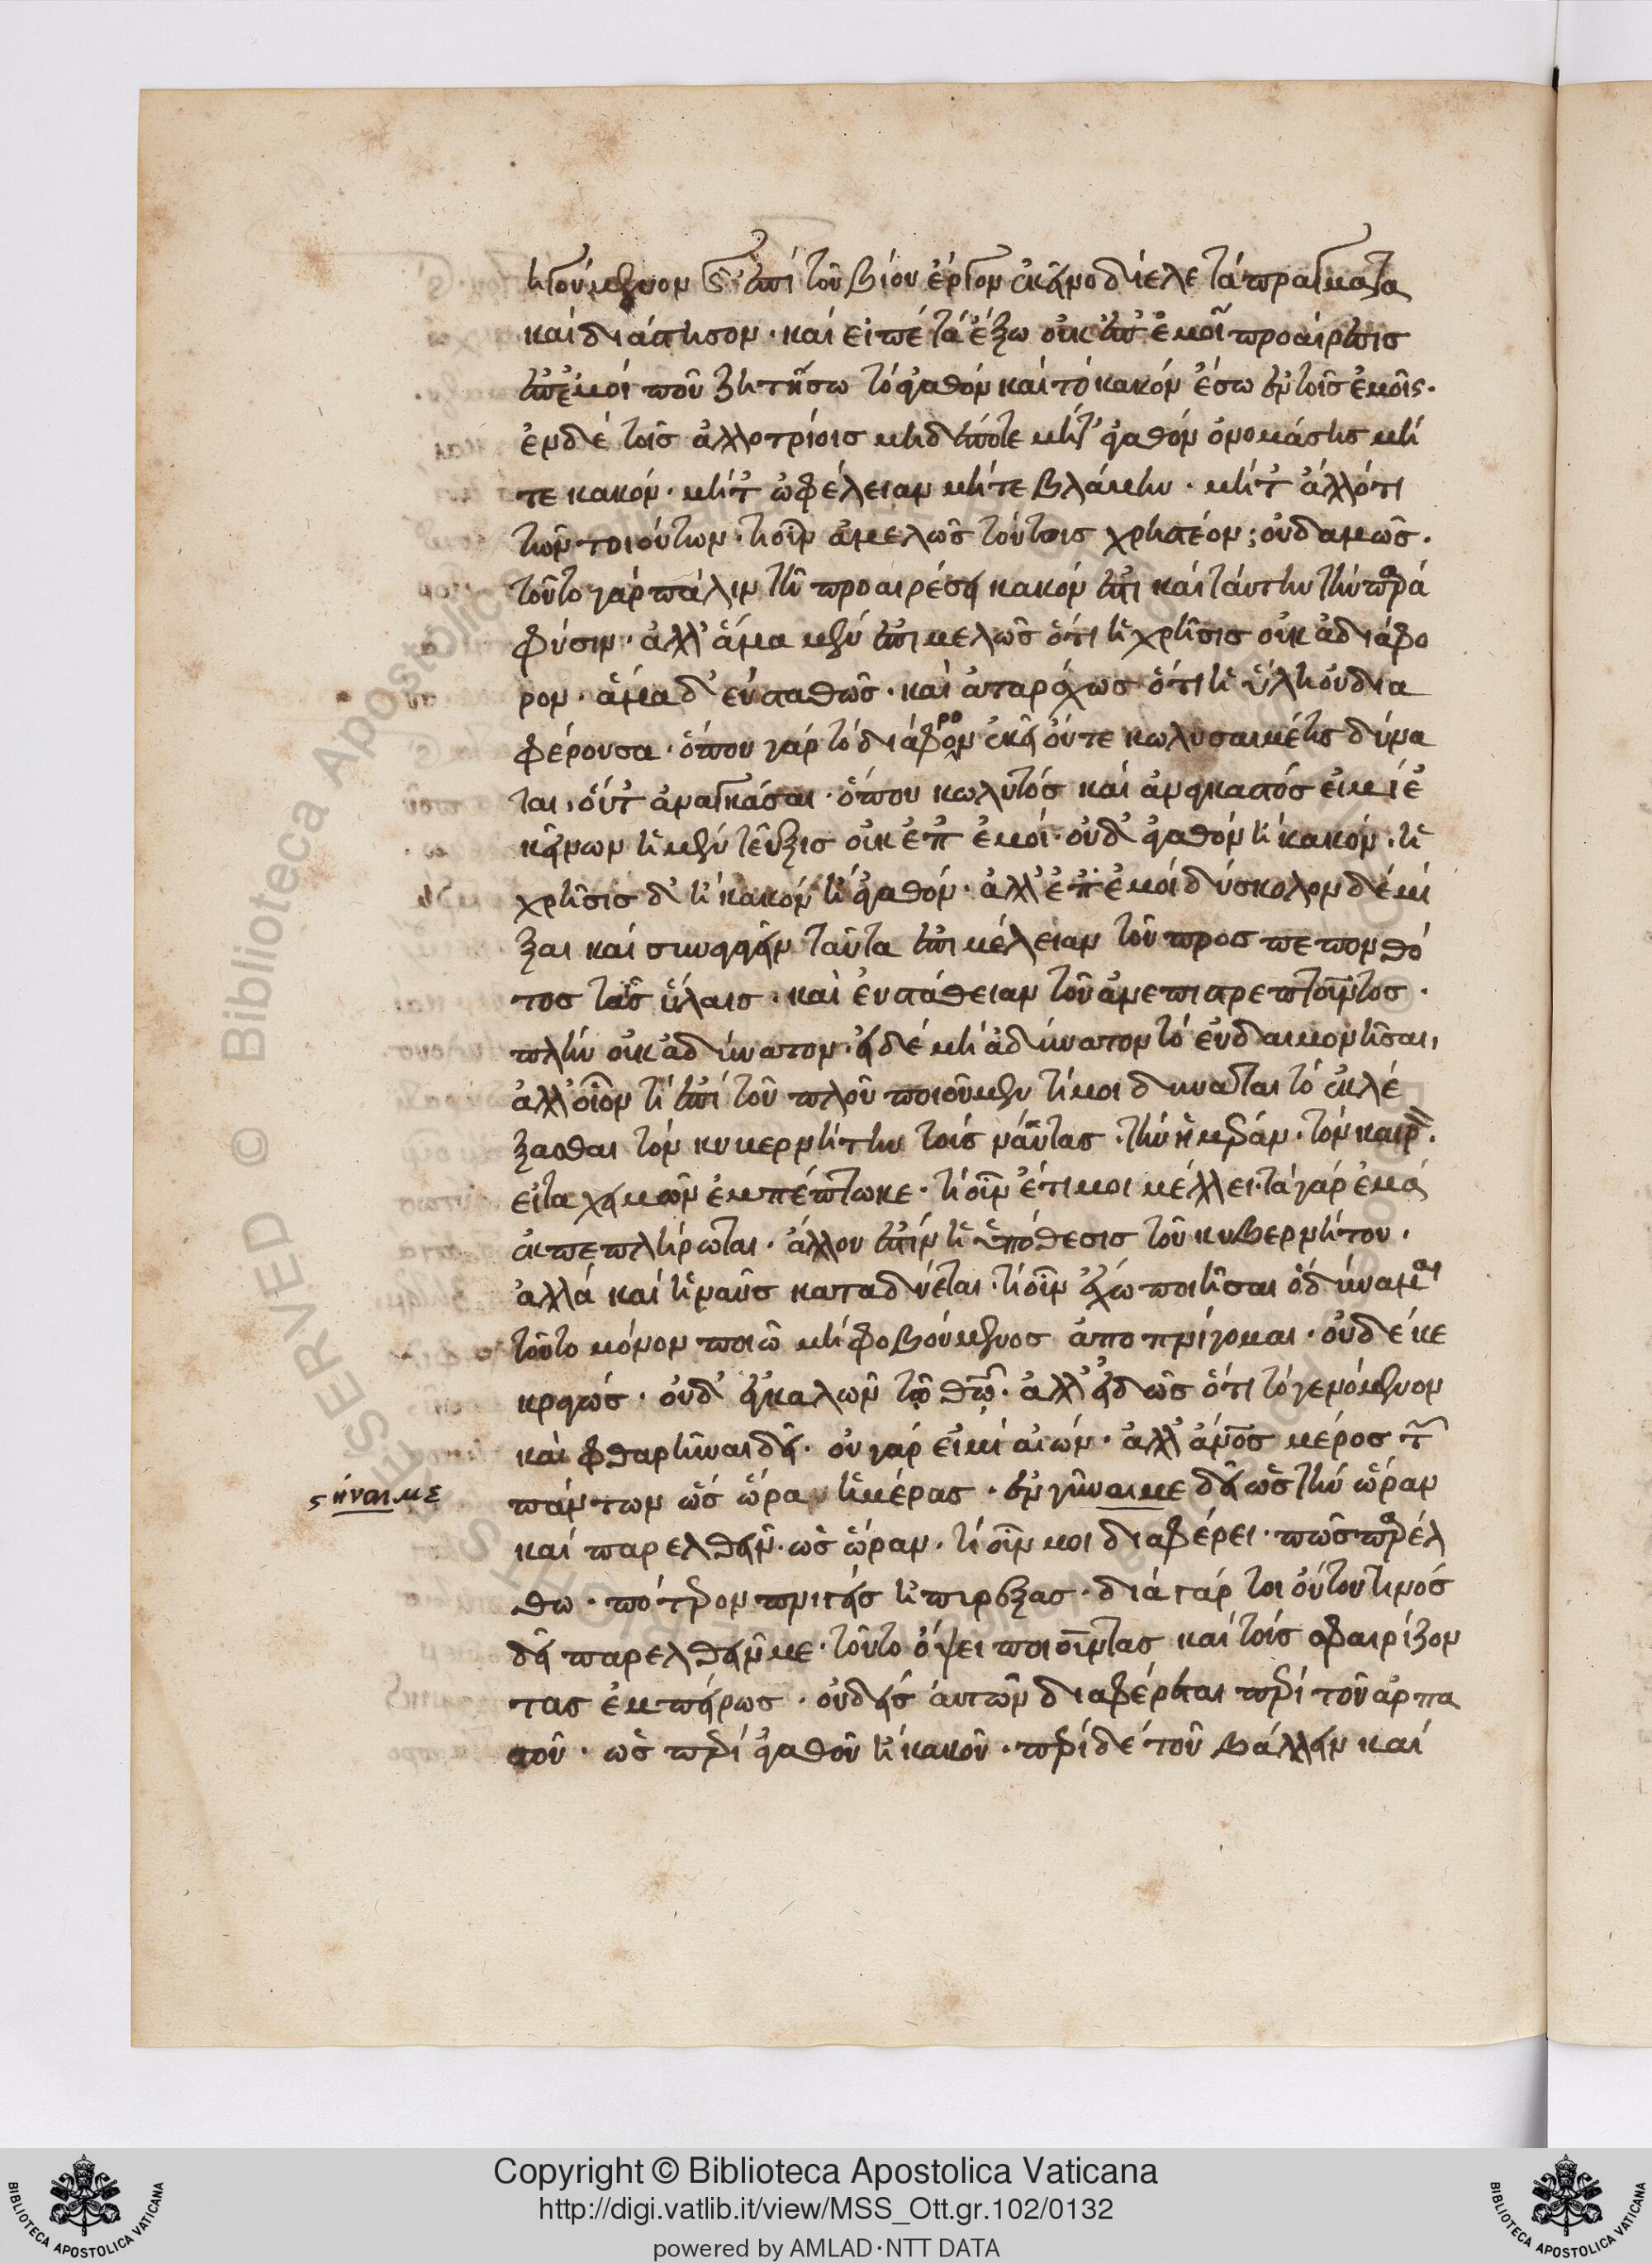 ἡγούμενον ς̑ ἐπὶ τοῦ βίου ἔργον ἐκεῖνο δίελε τὰ πράγματα
καὶ διάστησον· καὶ εἰπὲ τὰ ἔξω οὐκ ἐπ' ἐμοῖ προαίρεσις
ἐπ' ἐμοί ποῦ ζητήσω τὸ ἀγαθόν καὶ τὸ κακόν ἔσω ἐν τοῖς ἐμοῖς·
ἐν δὲ τοῖς ἀλλοτρίοις μηδέποτε μήτ' ἀγαθόν ὀνομάσης μή
τε κακόν· μήτ' ὠφέλειαν μήτε βλάβην· μήτ' ἄλλό τι
τῶν τοιούτων· τί οὖν ἀμελῶς τούτοις χρηστέον; οὐδαμῶς·
τοῦτο γάρ πάλιν τῆ προαιρέσει κακόν ἐστι καὶ ταύτην τὴν παρά
φύσιν· ἀλλ' ἅμα μὲν ἐπιμελῶς ὅτι ἡ χρῆσις οὐκ ἀδιάφο
ρον· ἅμα δ' εὐσταθῶς· καὶ ἀταράχως ὅτι ἡ ὕλη οὐ δια
φέρουσα· ὅπου γάρ τὸ διάφορον ἐκεῖ οὔτε κωλῦσαι μέ τις δύνα
ται, οὔτ' ἀναγκάσαι· ὅπου κωλυτός καὶ ἀναγκαστός εἰμι ἐ
κείνων ἡ μὲν τεῦξις οὐκ ἐπ' ἐμοί· οὐδ' ἀγαθόν ἢ κακόν· ἡ
χρῆσις δ' ἢ κακόν ἢ ἀγαθόν· ἀλλ' ἐπ' ἐμοί δύσκολον δὲ μί
ξαι καὶ συναγαγεῖν ταῦτα ἐπιμέλειαν τοῦ προσπεπονθό
τος ταῖς ὕλαις· καὶ εὐστάθειαν τοῦ ἀνεπιστρεπτοῦντος·
πλήν οὐκ ἀδύνατον· εἰ δὲ μή ἀδύνατον τὸ εὐδαιμονῆσαι,
ἀλλ' οἷόν τι ἐπὶ τοῦ πλοῦ ποιοῦμεν τί μοι δύναται τὸ ἐκλέ
ξασθαι τὸν κυβερνήτην τούς ναύτας· τὴν ἡμέραν· τὸν καιρόν·
εἶτα χειμών ἐμπέπτωκε· τί οὖν ἔτι μοι μέλλει· τὰ γάρ ἐμά
ἐκπεπλήρωται· ἄλλου ἐστίν ἡ ὑπόθεσις τοῦ κυβερνήτου·
ἀλλά καὶ ἡ ναῦς καταδύεται· τί οὖν ἔχω ποιῆσαι ὃ δύναμαι
τοῦτο μόνον ποιῶ μή φοβούμενος ἀποπνίγομαι· οὐδέ κε
κραγώς· οὐδ' ἐγκαλῶν τῷ θῶ· ἀλλ' εἰδώς ὅτι τὸ γενόμενον
καὶ φθαρῆναι δεῖ· οὐ γάρ εἰμί αἰών· ἀλλ' ἄνος μέρος τ
πάντων ὡς ὥρα ἡμέρας· ἐνγῆναι με δεῖ ὡς τὴν ὥραν
ςῆναι με
καὶ παρελθεῖν· ὡς ὥραν· τί οὖν μοι διαφέρει· πῶς παρέλ
θω· πότερον πνιγείς ἢ πυρέξας· διά γάρ τοιούτου τινός
δεῖ παρελθεῖν με· τοῦτο ὄψει ποιοῦντας καὶ τούς σφαιρίζον
τας ἐμπείρως· οὐδείς αὐτῶν διαφέρεται περὶ τοῦ ἁρπα
στοῦ· ὡς περὶ ἀγαθοῦ ἢ κακοῦ· περὶ δέ τοῦ βάλλειν καί
Copyright © Biblioteca Apostolica Vaticana
http://digi.vatlib.it/view/MSS_Ott.gr.102/0132
powered by AMLAD·NTT DATA